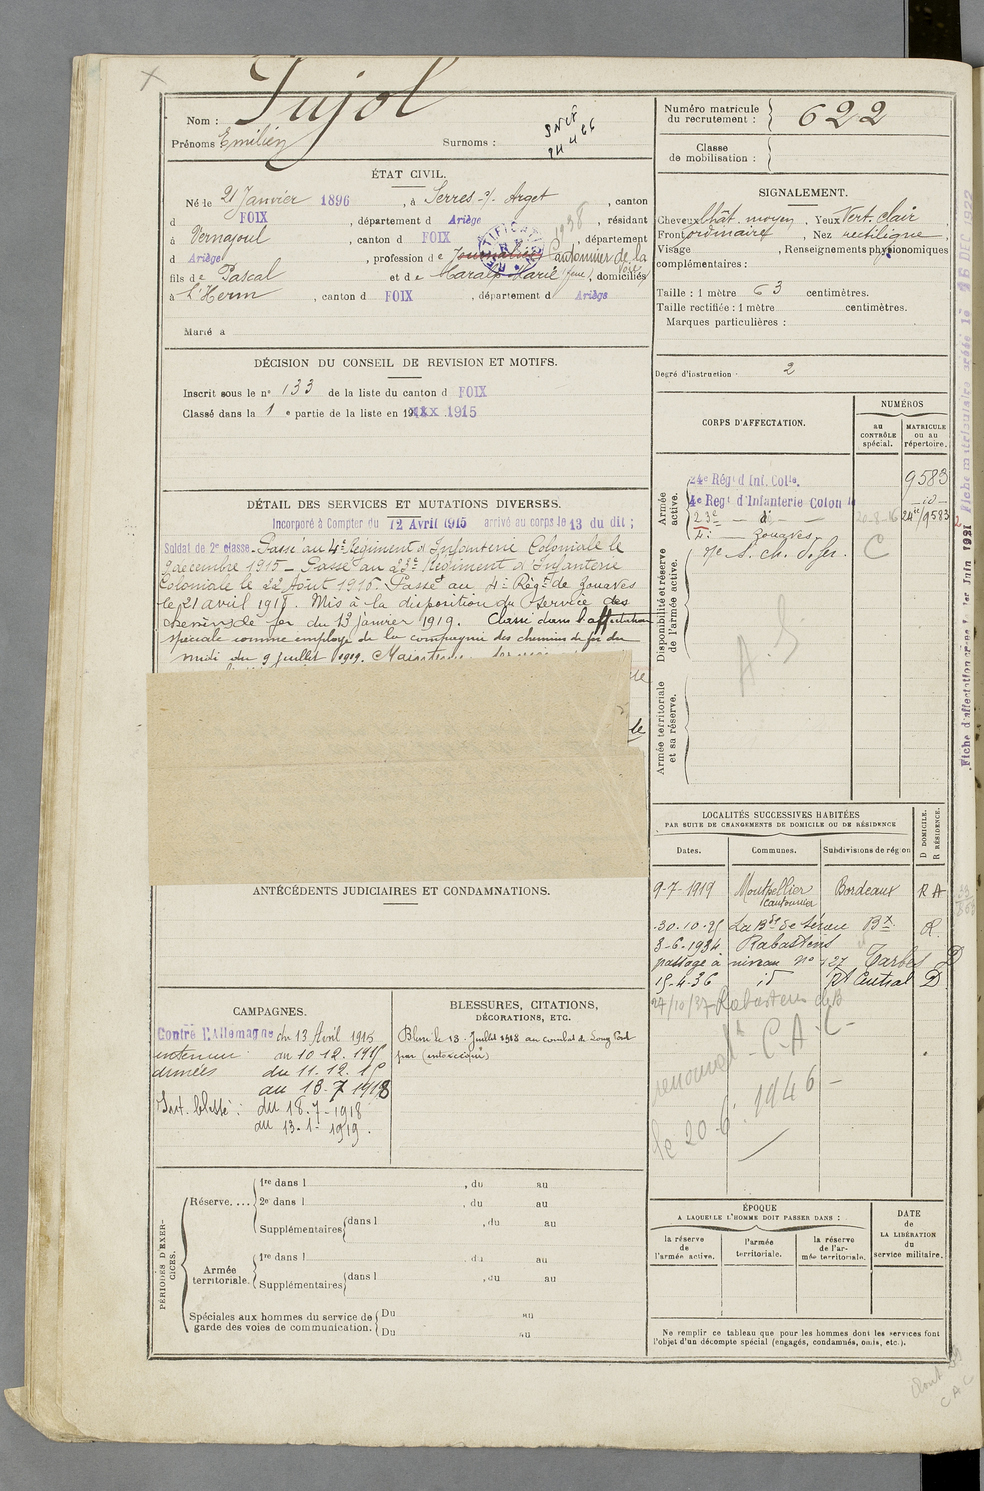 Nom : Pujol
Prénoms Emilien Surnoms :
SNCF
Numéro matricule
du recrutement : 622
Classe
de mobilisation :
ÉTAT CIVIL.
Né le 21 Janvier 1896 , à Serres s/ Arget , canton
d FOIX , département d Ariège , résidant
à Vernajoul , canton d FOIX 1938 , département
d Ariège , profession de Cantonnier de la voie
fils de Pascal et de Marie , domiciliés
à L'Herm , canton d FOIX , département d Ariège
Marié à
SIGNALEMENT.
Cheveux chât. moyen , Yeux Vert. clair
Front ordinaire , Nez rectiligne ,
Visage , Renseignements physionomiques
complémentaires :
Taille : 1 mètre 63 centimètres.
Taille rectifiée : 1 mètre centimètres.
Marques particulières :
Degré d'instruction : 2
DÉCISION DU CONSEIL DE REVISION ET MOTIFS.
Inscrit sous le n° 133 de la liste du canton d FOIX
Classé dans la 1 e partie de la liste en 19 1915
DÉTAIL DES SERVICES ET MUTATIONS DIVERSES.
Incorporé à Compter du 12 Avril 1915 arrivé au corps le 13 du dit ;
Soldat de 2e classe. Passé au 4e Régiment d'Infanterie Coloniale le
9 décembre 1915 – Passé au 23e Régiment d'Infanterie
Coloniale le 22 Août 1916. Passé au 4e Régt de Zouaves
le 21 avril 1918. Mis à la disposition du service des
chemins de fer du 13 janvier 1919. Classé dans l'affectation
spéciale comme employé de la compagnie des chemins de fer du
midi du 9 juillet 1919.
CORPS D'AFFECTATION.
NUMÉROS
AU CONTRÔLE spécial.
MATRICULE OU AU répertoire.
Armée active.
24e Régt d Inf. Colle. 9583
4e Regt d'Infanterie Colon le – id –
23e – d° – 20-8-16 24e/9583
4e – Zouaves –
S. ch. d. fer. C
Disponibilité et réserve de l'armée active.
A. S
Armée territoriale et sa réserve.
Fiche d'affectation créée le 1er Juin 1921
LOCALITÉS SUCCESSIVES HABITÉES
PAR SUITE DE CHANGEMENTS DE DOMICILE OU DE RÉSIDENCE
Dates. Communes. Subdivisions de région D DOMICILE. R RÉSIDENCE.
9-7-1919 Montpellier Bordeaux R A
cantonnier
30.10.25 Bx R.
8-6-1934 Rabastens
passage à niveau n° 127 Tarbes D
15-4-36 id Rt Central D
24/10/37 Rabastens
renouvelt C.A.C –
le 20-6- 1946 –
ANTÉCÉDENTS JUDICIAIRES ET CONDAMNATIONS.
CAMPAGNES.
Contre l'Allemagne du 13 Avril 1915
intérieur : au 10.12.1915
armées du 11.12.15
au 18.7.1918
Int. blessé : du 18.7-1918
au 13.1-1919.
BLESSURES, CITATIONS,
DÉCORATIONS, ETC.
Blessé le 18 Juillet 1918 au combat de Long Pont
PÉRIODES D'EXERCICES.
Réserve.... 1re dans l , du au
2e dans l , du au
Supplémentaires dans l , du au
Armée territoriale. 1re dans l , du au
Supplémentaires dans l , du au
Spéciales aux hommes du service de Du au
garde des voies de communication. Du au
ÉPOQUE
A LAQUELLE L'HOMME DOIT PASSER DANS :
la réserve de l'armée active.
l'armée territoriale.
la réserve de l'armée territoriale.
DATE de LA LIBÉRATION du service militaire.
Ne remplir ce tableau que pour les hommes dont les services font
l'objet d'un décompte spécial (engagés, condamnés, omis, etc.).
C A C